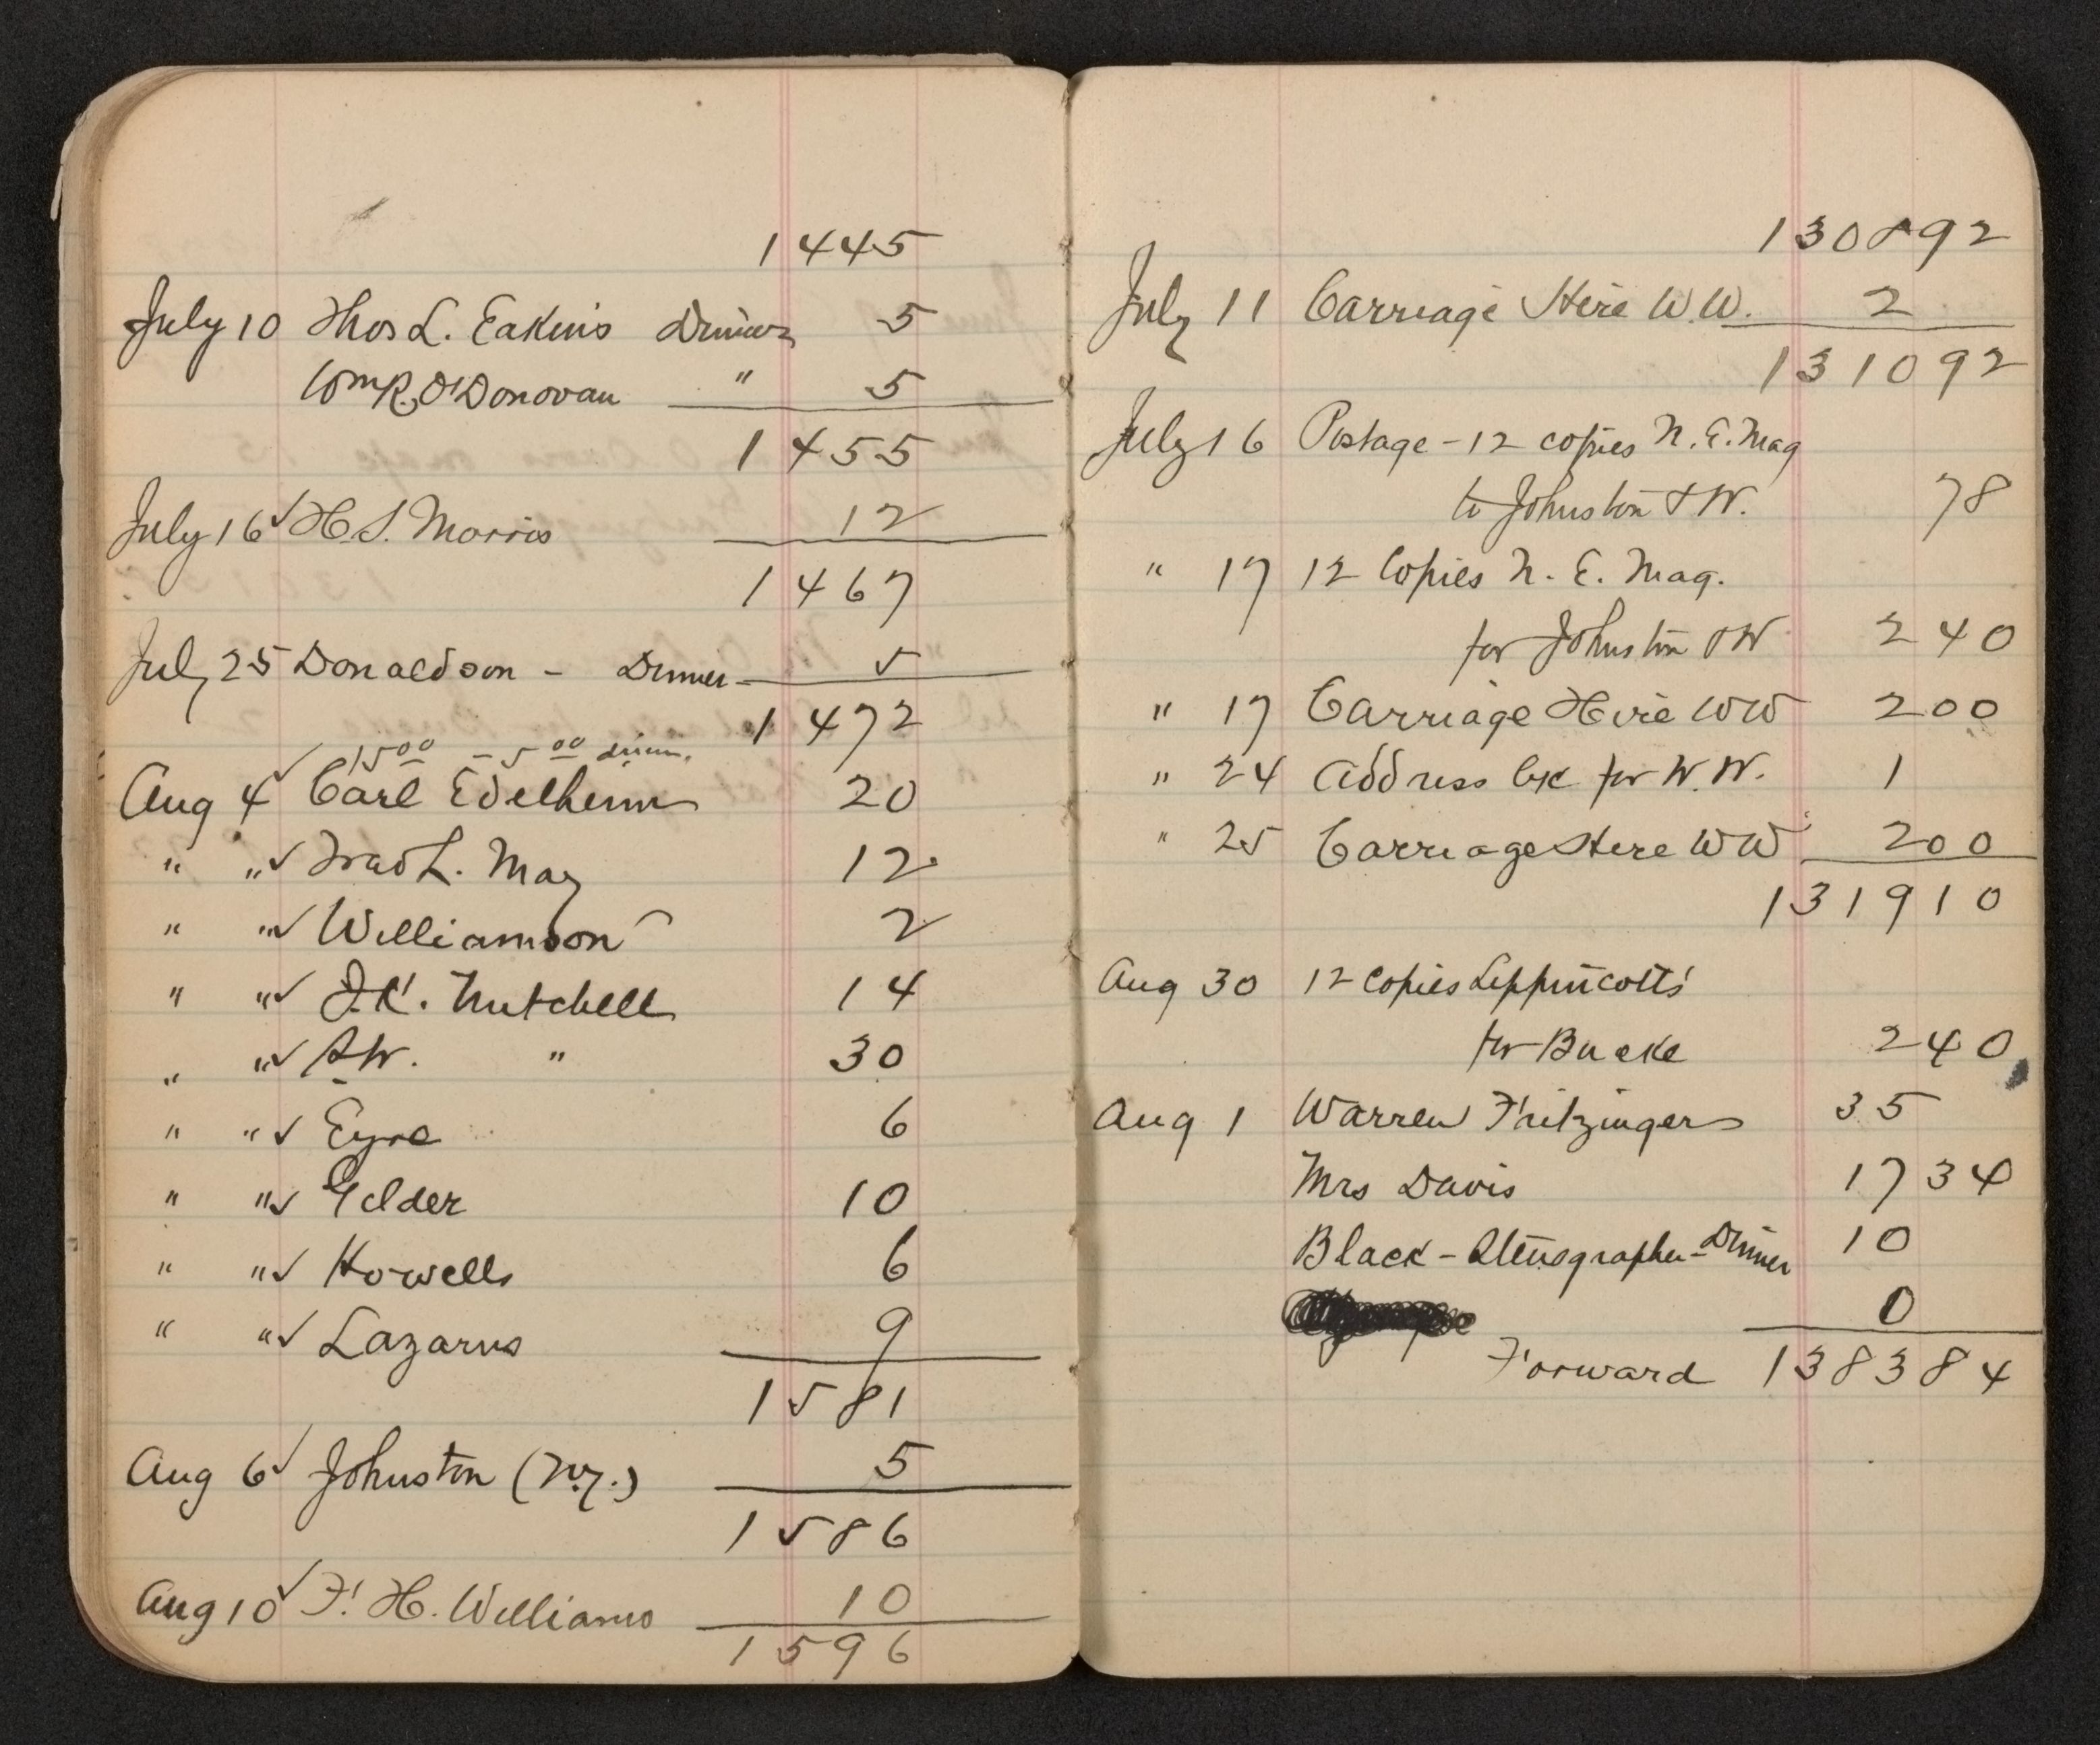 1445
July 10 Thos L. Eakins Dinner 5
Wm R. O'Donovan " 5
1455
July 16 ✓ H. S. Morris 12
1467
July 25 Donaldson - Dinner 5
1472
15 00 - 5 00 dinn.
Aug 4 ✓ Carl Edelheim 20
" " ✓ L. May 12
" " ✓ Williamson 2
" " ✓ J. K. Mitchell 14
" " ✓ S. W. " 30
" " ✓ Eyre 6
" " ✓ Gilder 10
" " ✓ Howells 6
" " ✓ Lazarus 9
1581
Aug 6 ✓ Johnston (N.Y.) 5
1586
Aug 10 ✓ F. H. Williams 10
1596
130892
July 11 Carriage Hire W.W. 2
131092
July 16 Postage - 12 copies N. E. Mag
to Johnston & W. 78
" 17 12 Copies N. E. Mag.
for Johnston & W 240
" 17 Carriage Hire WW 200
" 24 Address bk for W. W. 1
" 25 Carriage Hire WW 200
131910
Aug 30 12 Copies Lippincotts'
for Bucke 240
Aug 1 Warren Fritzinger 35
Mrs Davis 1734
Black - Stenographer - Dinner 10
0
Forward 138384